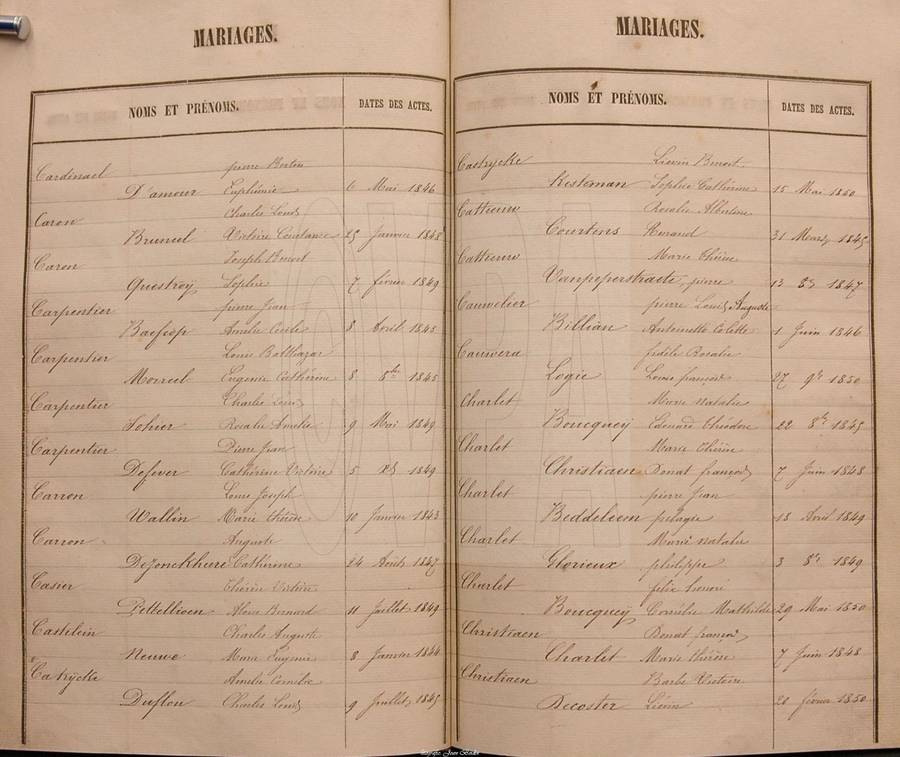 MARIAGES.
NOMS ET PRÉNOMS. DATES DES ACTES.
Cardinael pierre Bertin
D'amour Euphémie 6 Mai 1846
Caron Charles Louis
Bruneel Victoire Constance 25 Janvier 1848
Caron Joseph Benoit
Questroy Sophie 7 février 1849
Carpentier pierre Jean
Amelie Cecile 8 Avril 1845
Carpentier Louis Balthazar
Morreel Eugenie Cathérine 8 8bre 1845
Carpentier Charles Louis
Sohier Rosalie Amelie 9 Mai 1849
Carpentier Pierre Jean
Defever Catherine Victoire 5 1849
Carron Louis Joseph
Wallin Marie thérèse 10 Janvier 1843
Carron Auguste
Dejonckheere Catherine 24 Août 1847
Casier Thérèse Victoire
Pettellioen Bernard 11 Juillet 1849
Castelein Charles Auguste
Neuwe Marie Eugenie 8 Janvier 1844
Catrycke Amelie
Duflou Charles Louis 9 Juillet 1845
MARIAGES.
NOMS ET PRÉNOMS. DATES DES ACTES.
Castrycke Lievin Benoit
Kesteman Sophie Cathérine 15 Mai 1850
Catteeuw Rosalie Albertine
Courtens 31 Mars 1845
Catteeuw Marie Thérèse
Vanpeperstraete, pierre 13 8bre 1847
Cauwelier pierre Louis Auguste
Billiau Antoinette Colette 1 Juin 1846
Cauwera fidèle Rosalie
Logie Louis françois 27 9bre 1850
Charlet Marie Natalie
Boucquey Edouard Théodore 22 8bre 1845
Charlet Marie Thérèse
Christiaen Donat françois 7 Juin 1848
Charlet pierre Jean
Beddeleem pelagie 18 Avril 1849
Charlet Marie Natalie
Glorieux philippe 3 8bre 1849
Charlet felix
Boucquey Cornélie Mathilde 29 Mai 1850
Christiaen Donat françois
Charlet Marie thérèse 7 Juin 1848
Christiaen Barbe Victoire
Decoster Liévin 20 février 1850